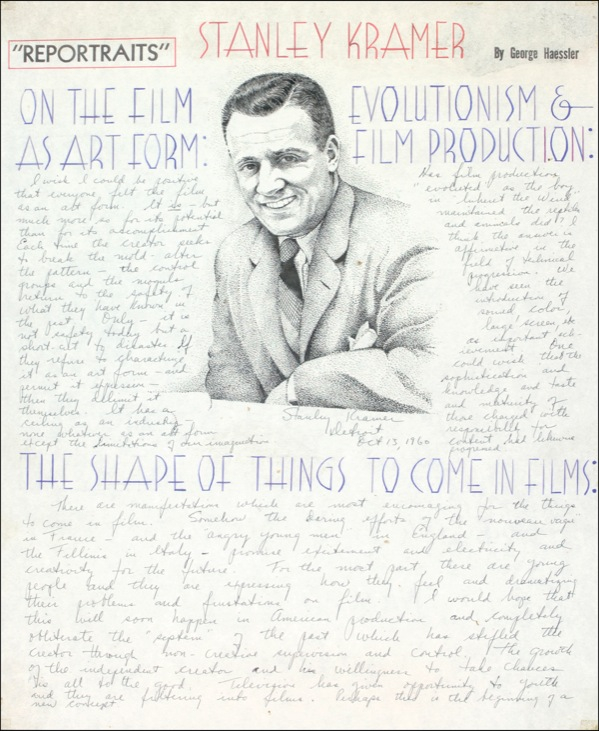 "REPORTRAITS"
STANLEY KRAMER
By George Haessler
ON THE FILM
AS ART FORM:
I wish I could be positive
that everyone felt the film
is an art form. It is – but
much more so for its potential
than for its accomplishment.
Each time the creator seeks
to break the mold – alter
the pattern – the control
groups and the moguls
return to the safety of
what they have known in
the past. Only – it is
not safety today but a
short-cut to disaster. If
they refuse to characterize
it as an art form – and
permit it expression –
then they delimit it
themselves. It has a
ceiling as an industry –
none whatever as an art form
except the limitations of our imagination
EVOLUTIONISM &
FILM PRODUCTION:
Has film production
"evolved" as the boy
in "Inherit the Wind"
maintained the reptiles
and animals did? I
think the answer is
affirmative in the
field of technical
progression. We
have seen the
introduction of
sound, color,
large screen, etc
as important ach-
ievement. One
could wish that the
sophistication and
knowledge and taste
and maturity of
those charged with
responsibility for
content had likewise
progressed.
Stanley Kramer
Detroit
Oct 13, 1960
THE SHAPE OF THINGS TO COME IN FILMS:
There are manifestations which are most encouraging for the things
to come in film. Somehow the daring efforts of the "nouveau vague"
in France – and the "angry young men" in England – and
the Fellinis in Italy – promise excitement and electricity and
creativity for the future. For the most part these are young
people and they are expressing how they feel and dramatizing
their problems and frustrations on film. I would hope that
this will soon happen in American production and completely
obliterate the "system" of the past which has stifled the
creator through non-creative supervision and control. The growth
of the independent creator and his willingness to take chances
is all to the good. Television has given opportunity to youth
and they are filtering into films. Perhaps this is the beginning of a
new concept